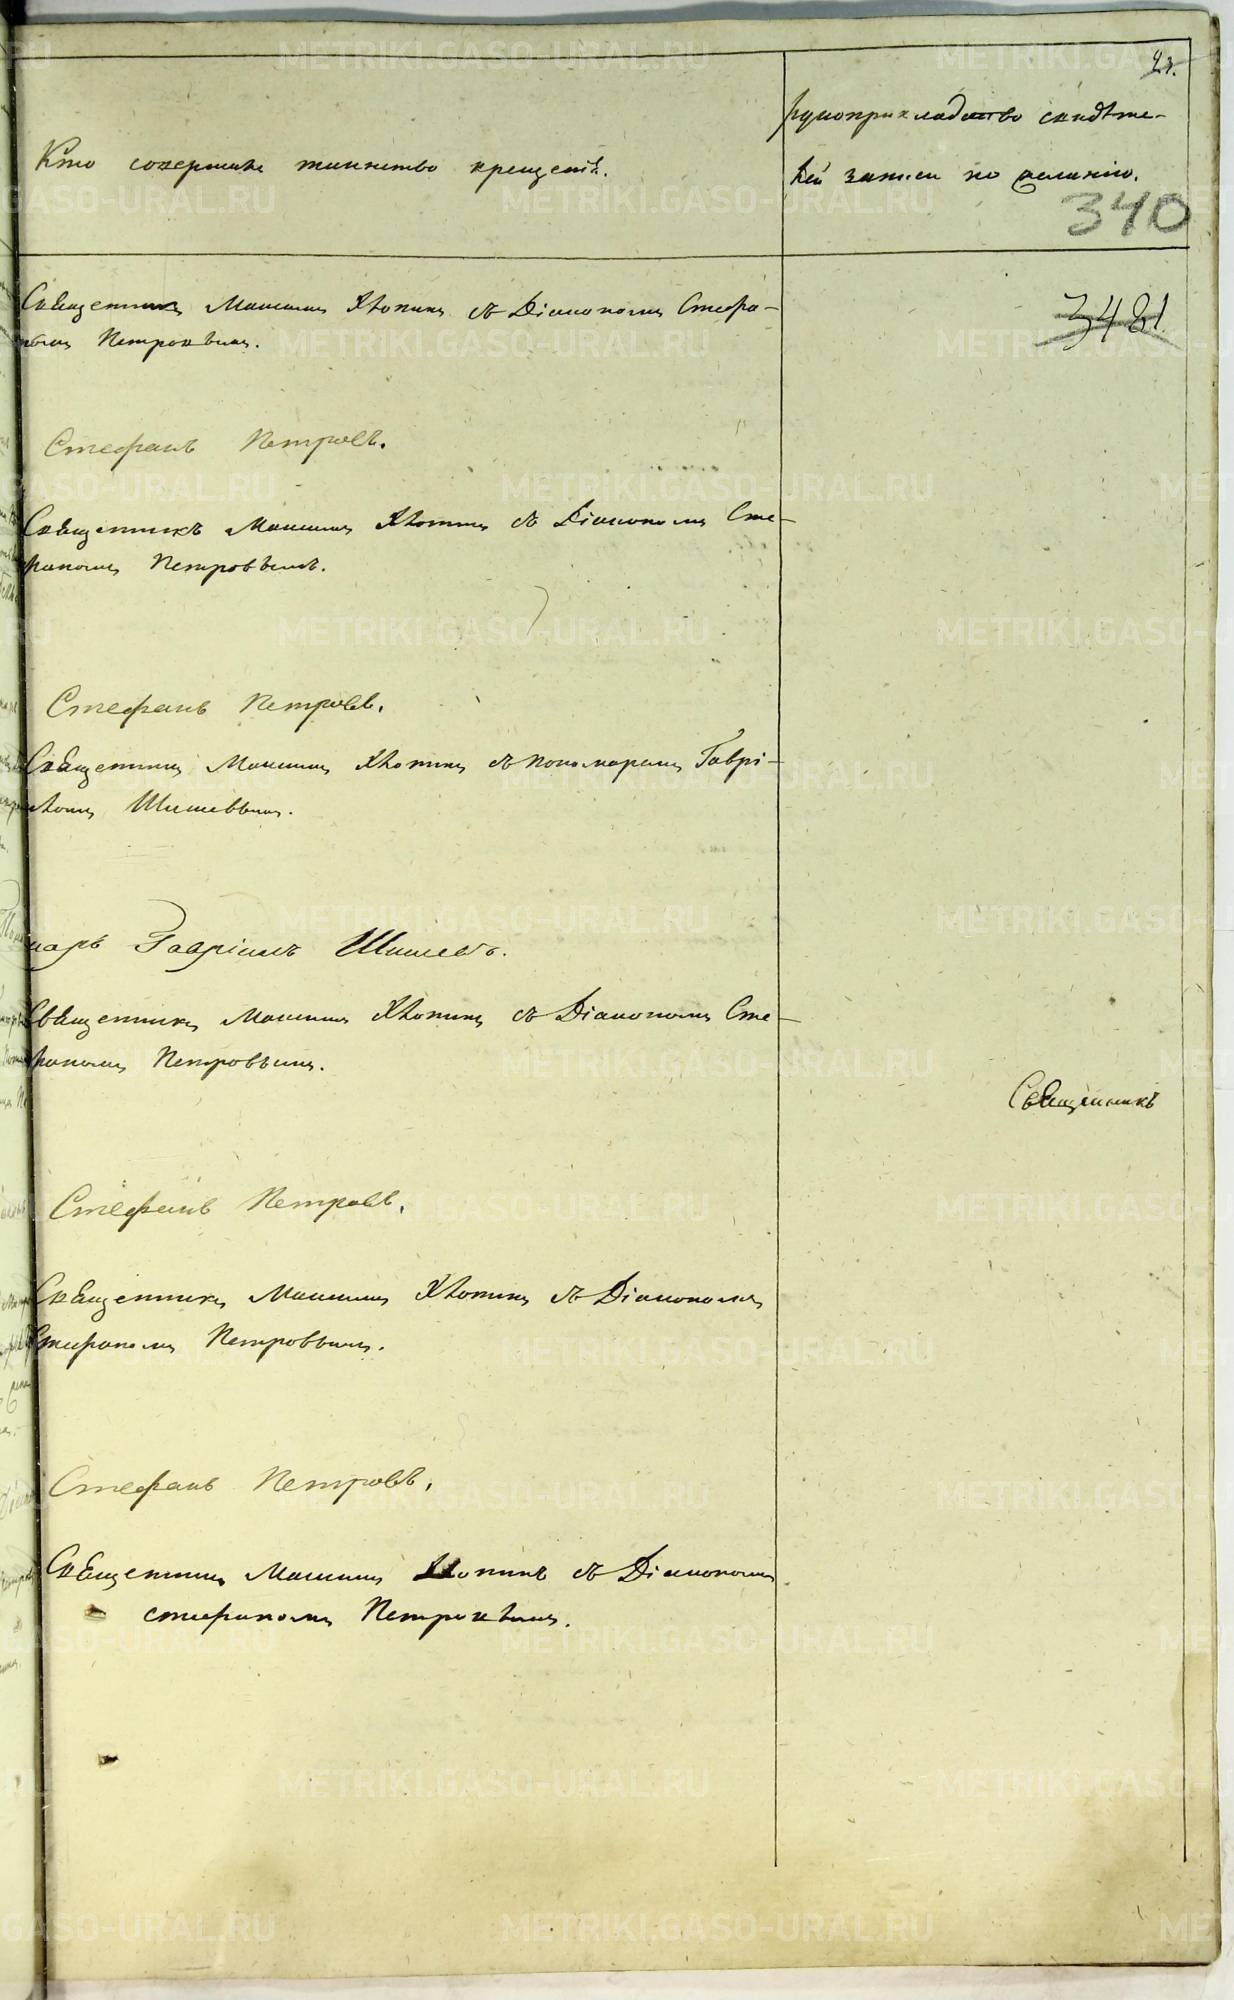 21.
Кто совершалъ таинство крещенія.
рукоприкладство свидѣте-
лей записи по желанію.
340
3421
Священникъ Максимъ Хлопинъ съ Діакономъ Стефа-
номъ Петровымъ.
Стефанъ Петровъ.
Священникъ Максимъ Хлопинъ съ Діакономъ Сте-
фаномъ Петровымъ.
Стефанъ Петровъ.
Священникъ Максимъ Хлопинъ съ пономаремъ Гаврі-
ломъ Шишевымъ.
марь Гавріилъ Шишевъ.
Священникъ Максимъ Хлопинъ съ Діакономъ Сте-
фаномъ Петровымъ.
Священникъ
Стефанъ Петровъ.
Священникъ Максимъ Хлопинъ съ Діакономъ
Стефаномъ Петровымъ.
Стефанъ Петровъ.
Священникъ Максимъ Хлопинъ съ Діакономъ
стефаномъ Петровымъ.
METRIKI.GASO-URAL.RU